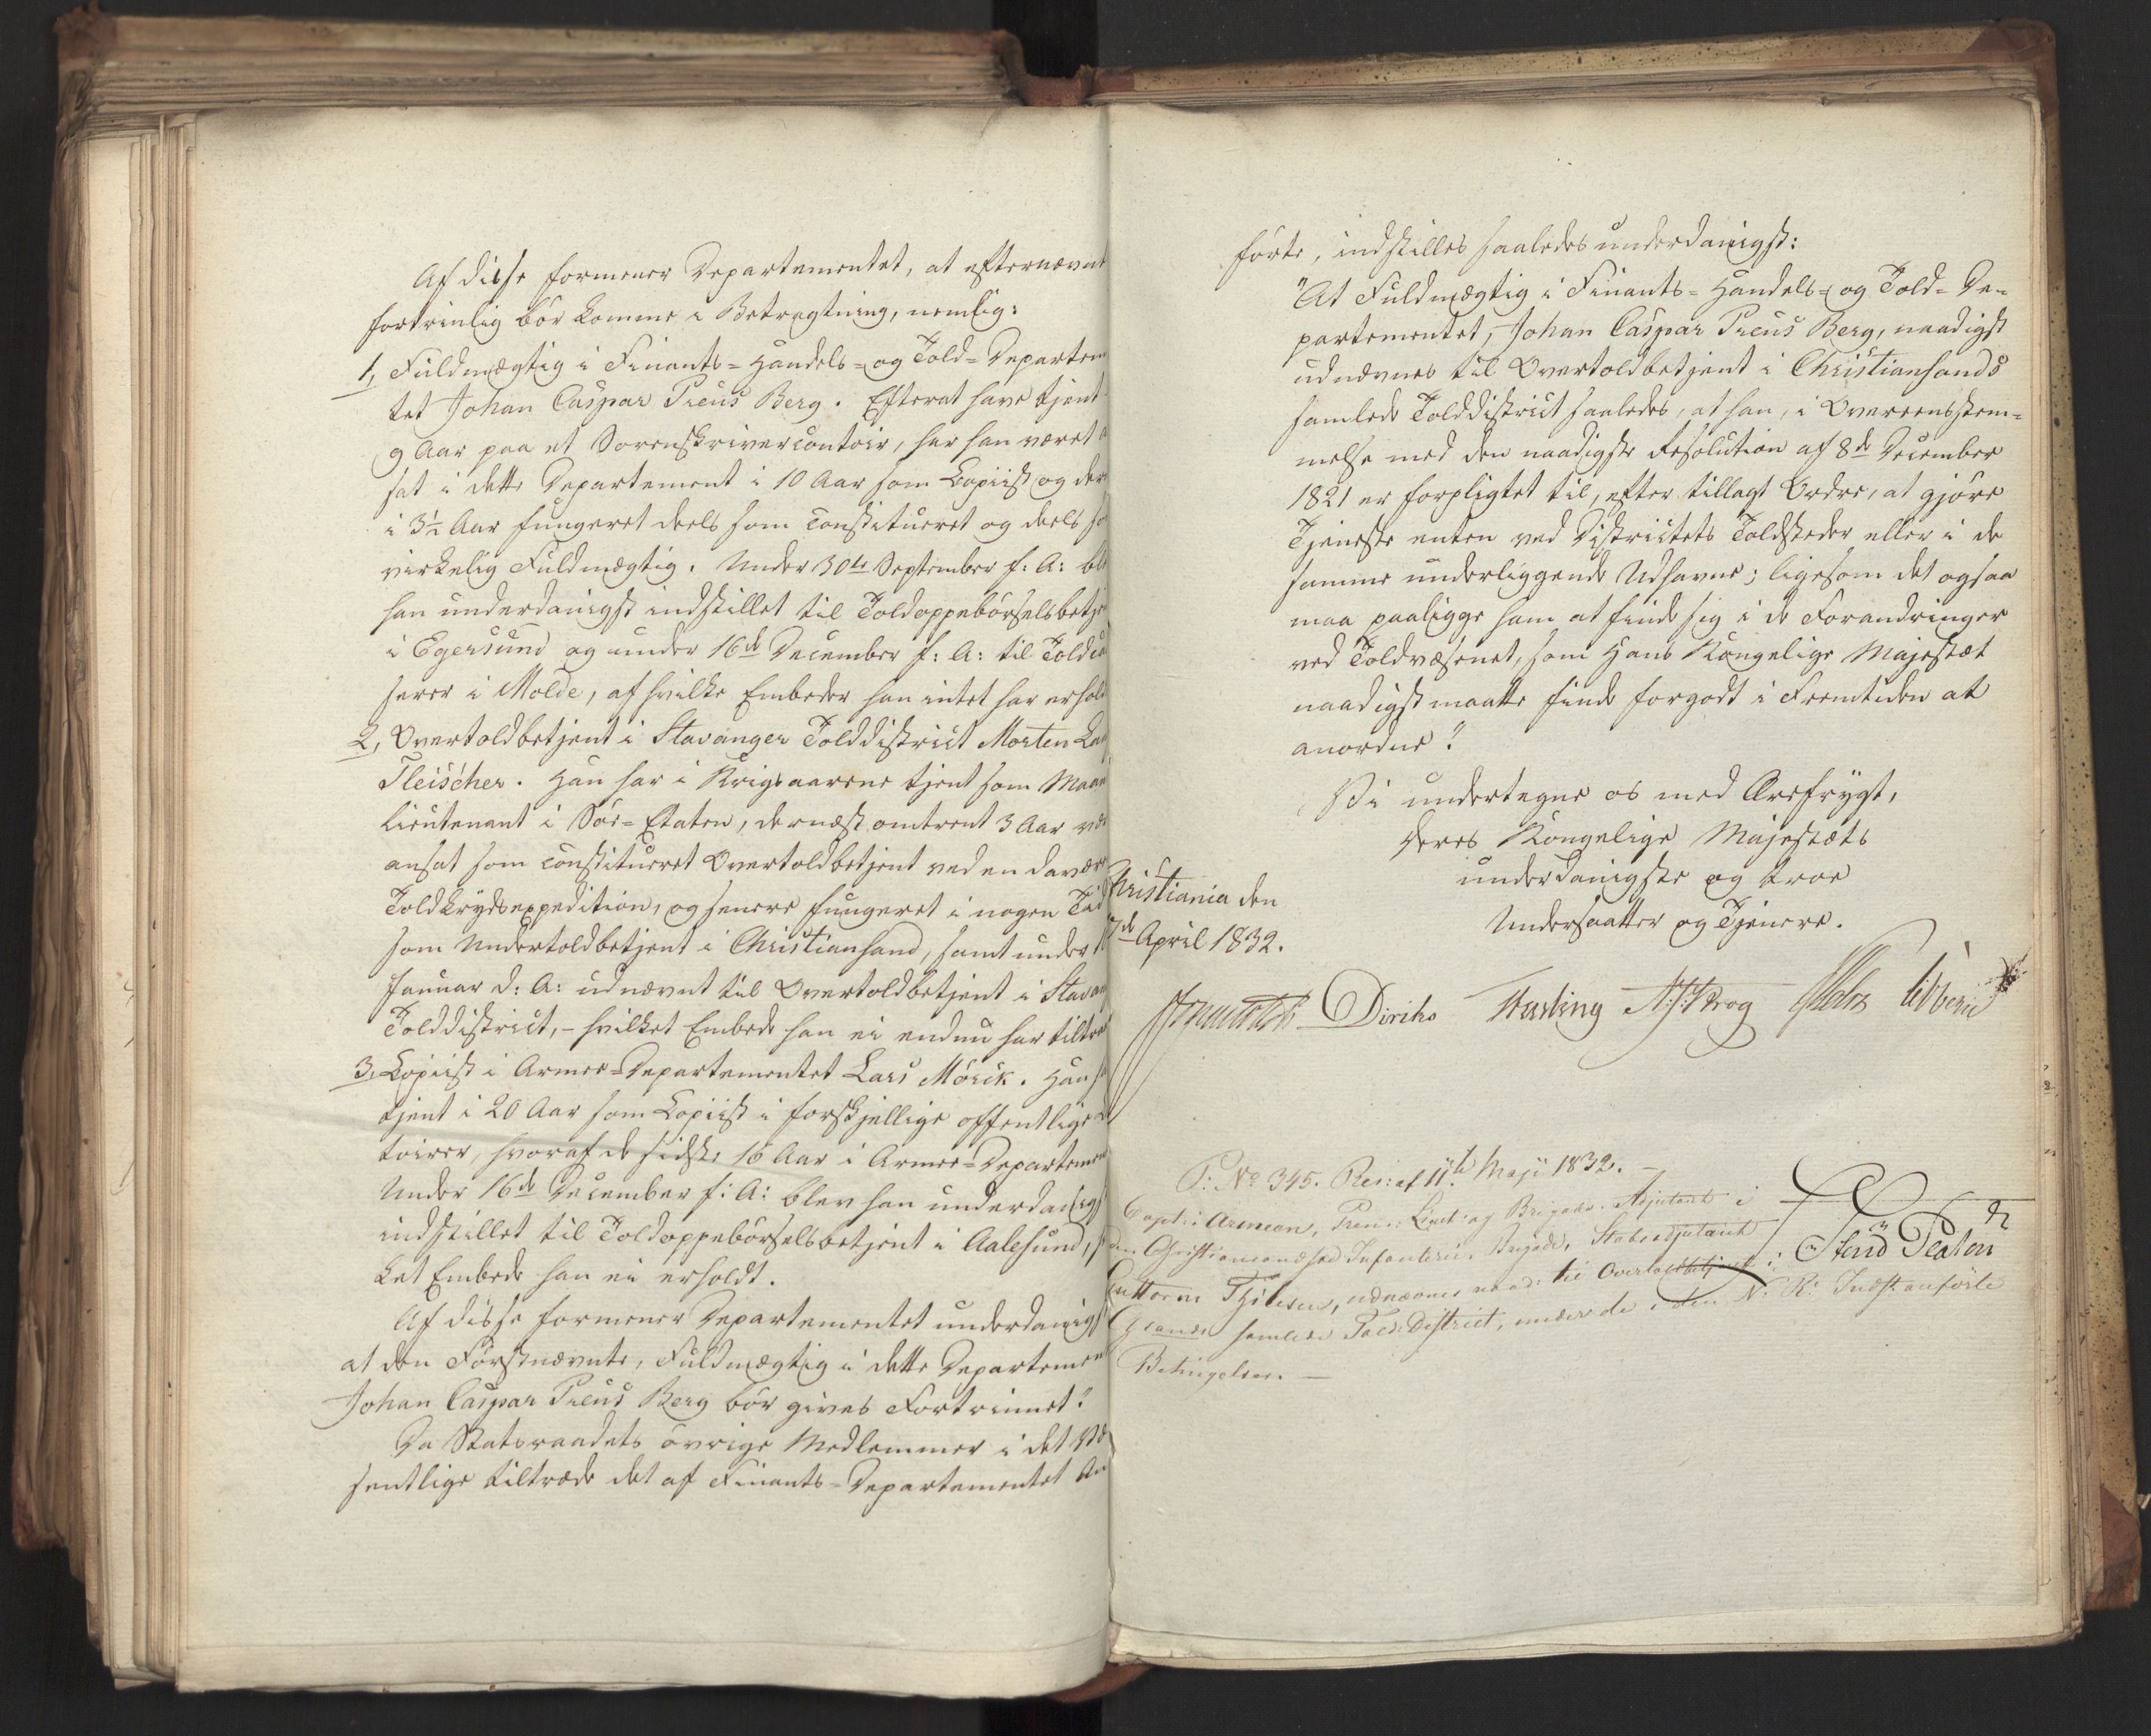 Af disse formener Departementet, at efternævnt
fortrinlig bör komme i Betragtning, nemlig:
1, Fuldmægtig i Finants- Handels- og Told-Departem
tet Johan Caspar Preus Berg. Efterat have tjent
9 Aar paa et Sorenskrivercontoir, har han været a
sat i dette Departement i 10 Aar som Copiist og der
i 3½ Aar fungeret deels som constitueret og deels so
virkelig Fuldmægtig. Under 30te September f: A: ble
han underdanigst indstillet til Toldoppebörselsbetje
i Egersund og under 16de December f: A: til Toldca
serer i Molde, af hvilke Embeder han intet har erhold
2, Overtoldbetjent i Stavanger Tolddistrict Morten
Fleischer. Han har i Krigsaarene tjent som Maan
Lieutenant i Söe-Etaten, dernæst omtrent 3 Aar væ
ansat som constitueret Overtoldbetjent ved en davær
Toldkrydsexpedition, og senere fungeret i nogen Tid
som Undertoldbetjent i Christiansand, samt under
Januar d: A: udnævnt til Overtoldbetjent i Stavan
Tolddistrict, - hvilket Embede han ei endnu har tiltraa
3, Copiist i Armee-Departementet Lars Mörck. Han ha
tjent i 20 Aar som Copiist i forskjellige offentlige
toirer, hvoraf de sidste 16 Aar i Armee-Departemen
Under 16de December f: A: blev han underdanigst
indstillet til Toldoppebörselsbetjent i Aalesund,
ket Embede han ei erholdt.
Af disse formener Departementet underdanigst
at den Förstnævnte, Fuldmægtig i dette Departemen
Johan Caspar Preus Berg bör gives Fortrinnet."
Da Statsraadets övrige Medlemmer i det Væ
sentlige tiltræde det af Finants-Departementet An
förte, indstilles saaledes underdanigst:
"At Fuldmægtig i Finants- Handels- og Told-De-
partementet, Johan Caspar Preus Berg, naadigst
udnævnes til Overtoldbetjent i Christiansands
samlede Tolddistrict saaledes, at han, i Overeensstem-
melse med den naadigste Resolution af 8de December
1821 er forpligtet til, efter tillagt Ordre, at gjöre
Tjeneste enten ved Districtets Toldsteder eller i de
samme underliggende Udhavne; ligesom det ogsaa
maa paaligge ham at finde sig i de Forandringer
ved Toldvæsenet, som Hans Kongelige Majestæt
naadigst maatte finde forgodt i Fremtiden at
anordne."
Vi undertegne os med Ærefrygt,
Deres Kongelige Majestæts
underdanigste og troe
Undersaatter og Tjenere.
Christiania den
April 1832.
Diriks Fasting Krog Holst Vibe
P: No 345. Res: af 11te Maji 1832. -
Capt: i Armeen, Prem: Lieut: og Brigade-Adjutant i
den Christiansandske Infanterie-Brigade, Stabsadjutant
Guttorm Thilesen, udnævnes naad: til Overtoldbetjent i
Xsands samlede Told-District, under de i den N: R: Indst: anförte
Betingelser. -